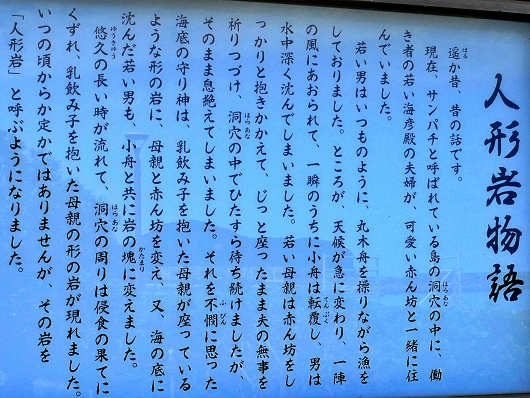 人形岩物語
遥か昔、昔の話です。
現在、サンパチと呼ばれている島の洞穴の中に、働
き者の若い海彦殿の夫婦が、可愛い赤ん坊と一緒に住
んでいました。
若い男はいつものように、丸木舟を操りながら漁を
しておりました。ところが、天候が急に変わり、一陣
の風にあおられて、一瞬のうちに小舟は転覆し、男は
水中深く沈んでしまいました。若い母親は赤ん坊をし
っかりと抱きかかえて、じっと座ったまま夫の無事を
祈りつづけ、洞穴の中でひたすら待ち続けましたが、
そのまま息絶えてしまいました。それを不憫に思った
海底の守り神は、乳飲み子を抱いた母親が座っている
ような形の岩に、母親と赤ん坊を変え、又、海の底に
沈んだ若い男も、小舟と共に岩の塊に変えました。
悠久の長い時が流れて、洞穴の周りは侵食の果てに
くずれ、乳飲み子を抱いた母親の形の岩が現れました。
いつの頃からか定かではありませんが、その岩を
「人形岩」と呼ぶようになりました。